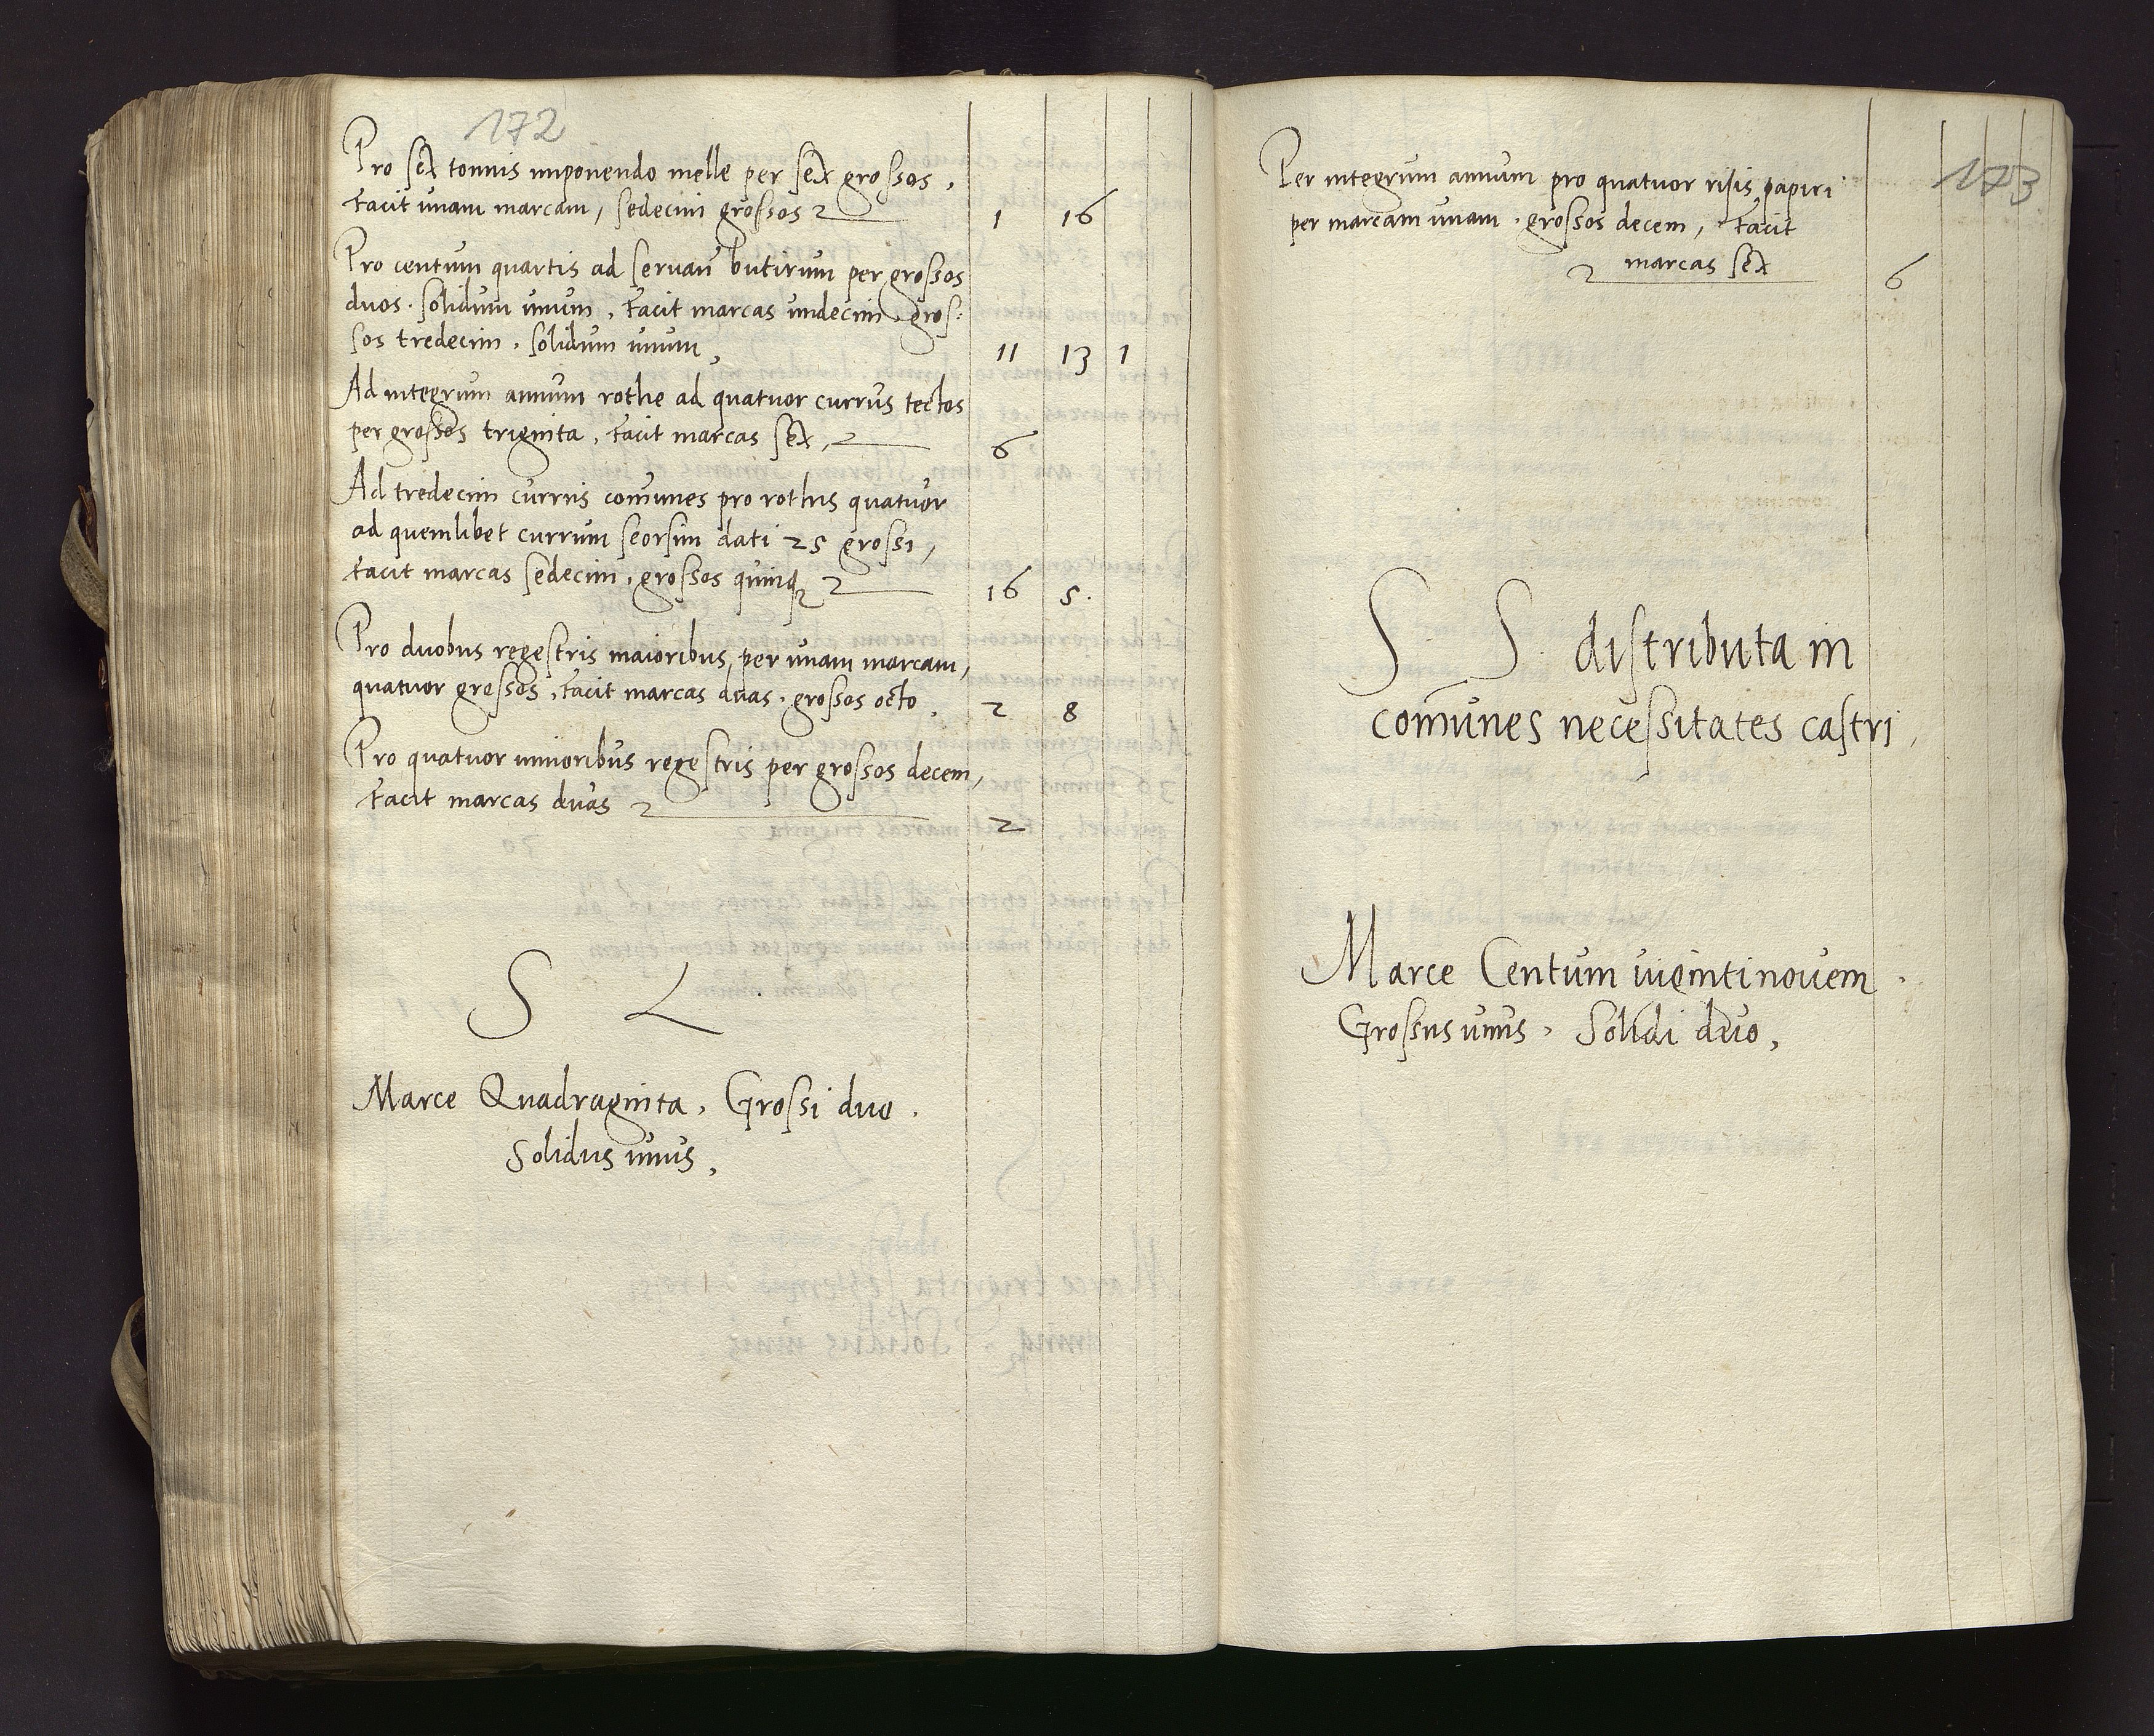 172
Pro sex tonnis imponendo melle per sex grossos,
facit unam marcam, sedecim grossos 1 16
Pro centum quartis ad servan̄ butirum per grossos
duos. solidum unum, facit marcas undecim, gros:
sos tredecim. solidum unum, 11 13 1
Ad integrum annum rothe ad quatuor currus tectos
per grossos triginta, facit marcas sex, 6
Ad tredecim currus com̄unes pro rothis quatuor
ad quemlibet currum seorsim dati 25 grossi,
facit marcas sedecim, grossos quinq 16 5.
Pro duobus regestris maioribus, per unam marcam,
quatuor grossos, facit marcas duas. grossos octo, 2 8
Pro quatuor minoribus regestris per grossos decem,
facit marcas duas 2
S L
Marce Quadraginta, Grossi duo.
Solidus unus,
173
Per integrum annum pro quatuor risis papiri
per marcam unam. grossos decem, facit
marcas sex 6
S S. distributa in
com̄unes necessitates castri,
Marce Centum viginti novem.
Grossus unus. Solidi duo,